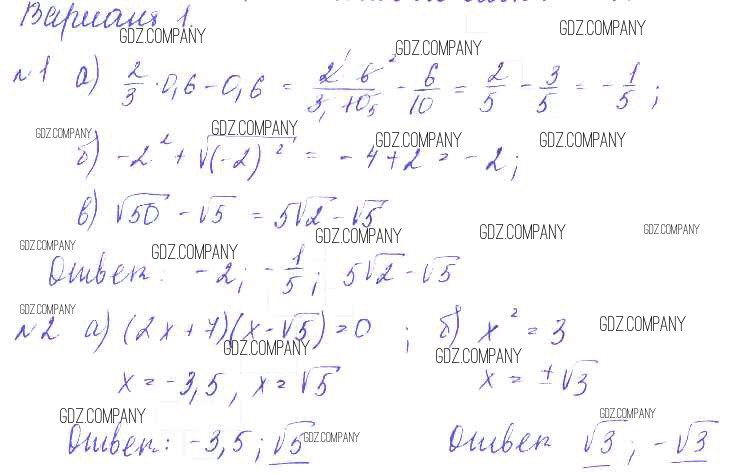 Вариант 1.
GDZ.COMPANY GDZ.COMPANY GDZ.COMPANY
№1 а) 2/3 · 0,6 − 0,6 = 2 · 6 / 3 · 10 − 6/10 = 2/5 − 3/5 = − 1/5 ;
GDZ.COMPANY GDZ.COMPANY GDZ.COMPANY GDZ.COMPANY
б) −2² + √(−2)² = −4 + 2 = −2;
в) √50 − √5 = 5√2 − √5
GDZ.COMPANY GDZ.COMPANY GDZ.COMPANY GDZ.COMPANY GDZ.COMPANY
Ответ: −2; − 1/5 ; 5√2 − √5
GDZ.COMPANY
№2 а) (2x + 7)(x − √5) = 0 ; б) x² = 3
GDZ.COMPANY GDZ.COMPANY GDZ.COMPANY
x = −3,5, x = √5 x = ±√3
GDZ.COMPANY GDZ.COMPANY
Ответ: −3,5; √5 Ответ √3 ; −√3
GDZ.COMPANY